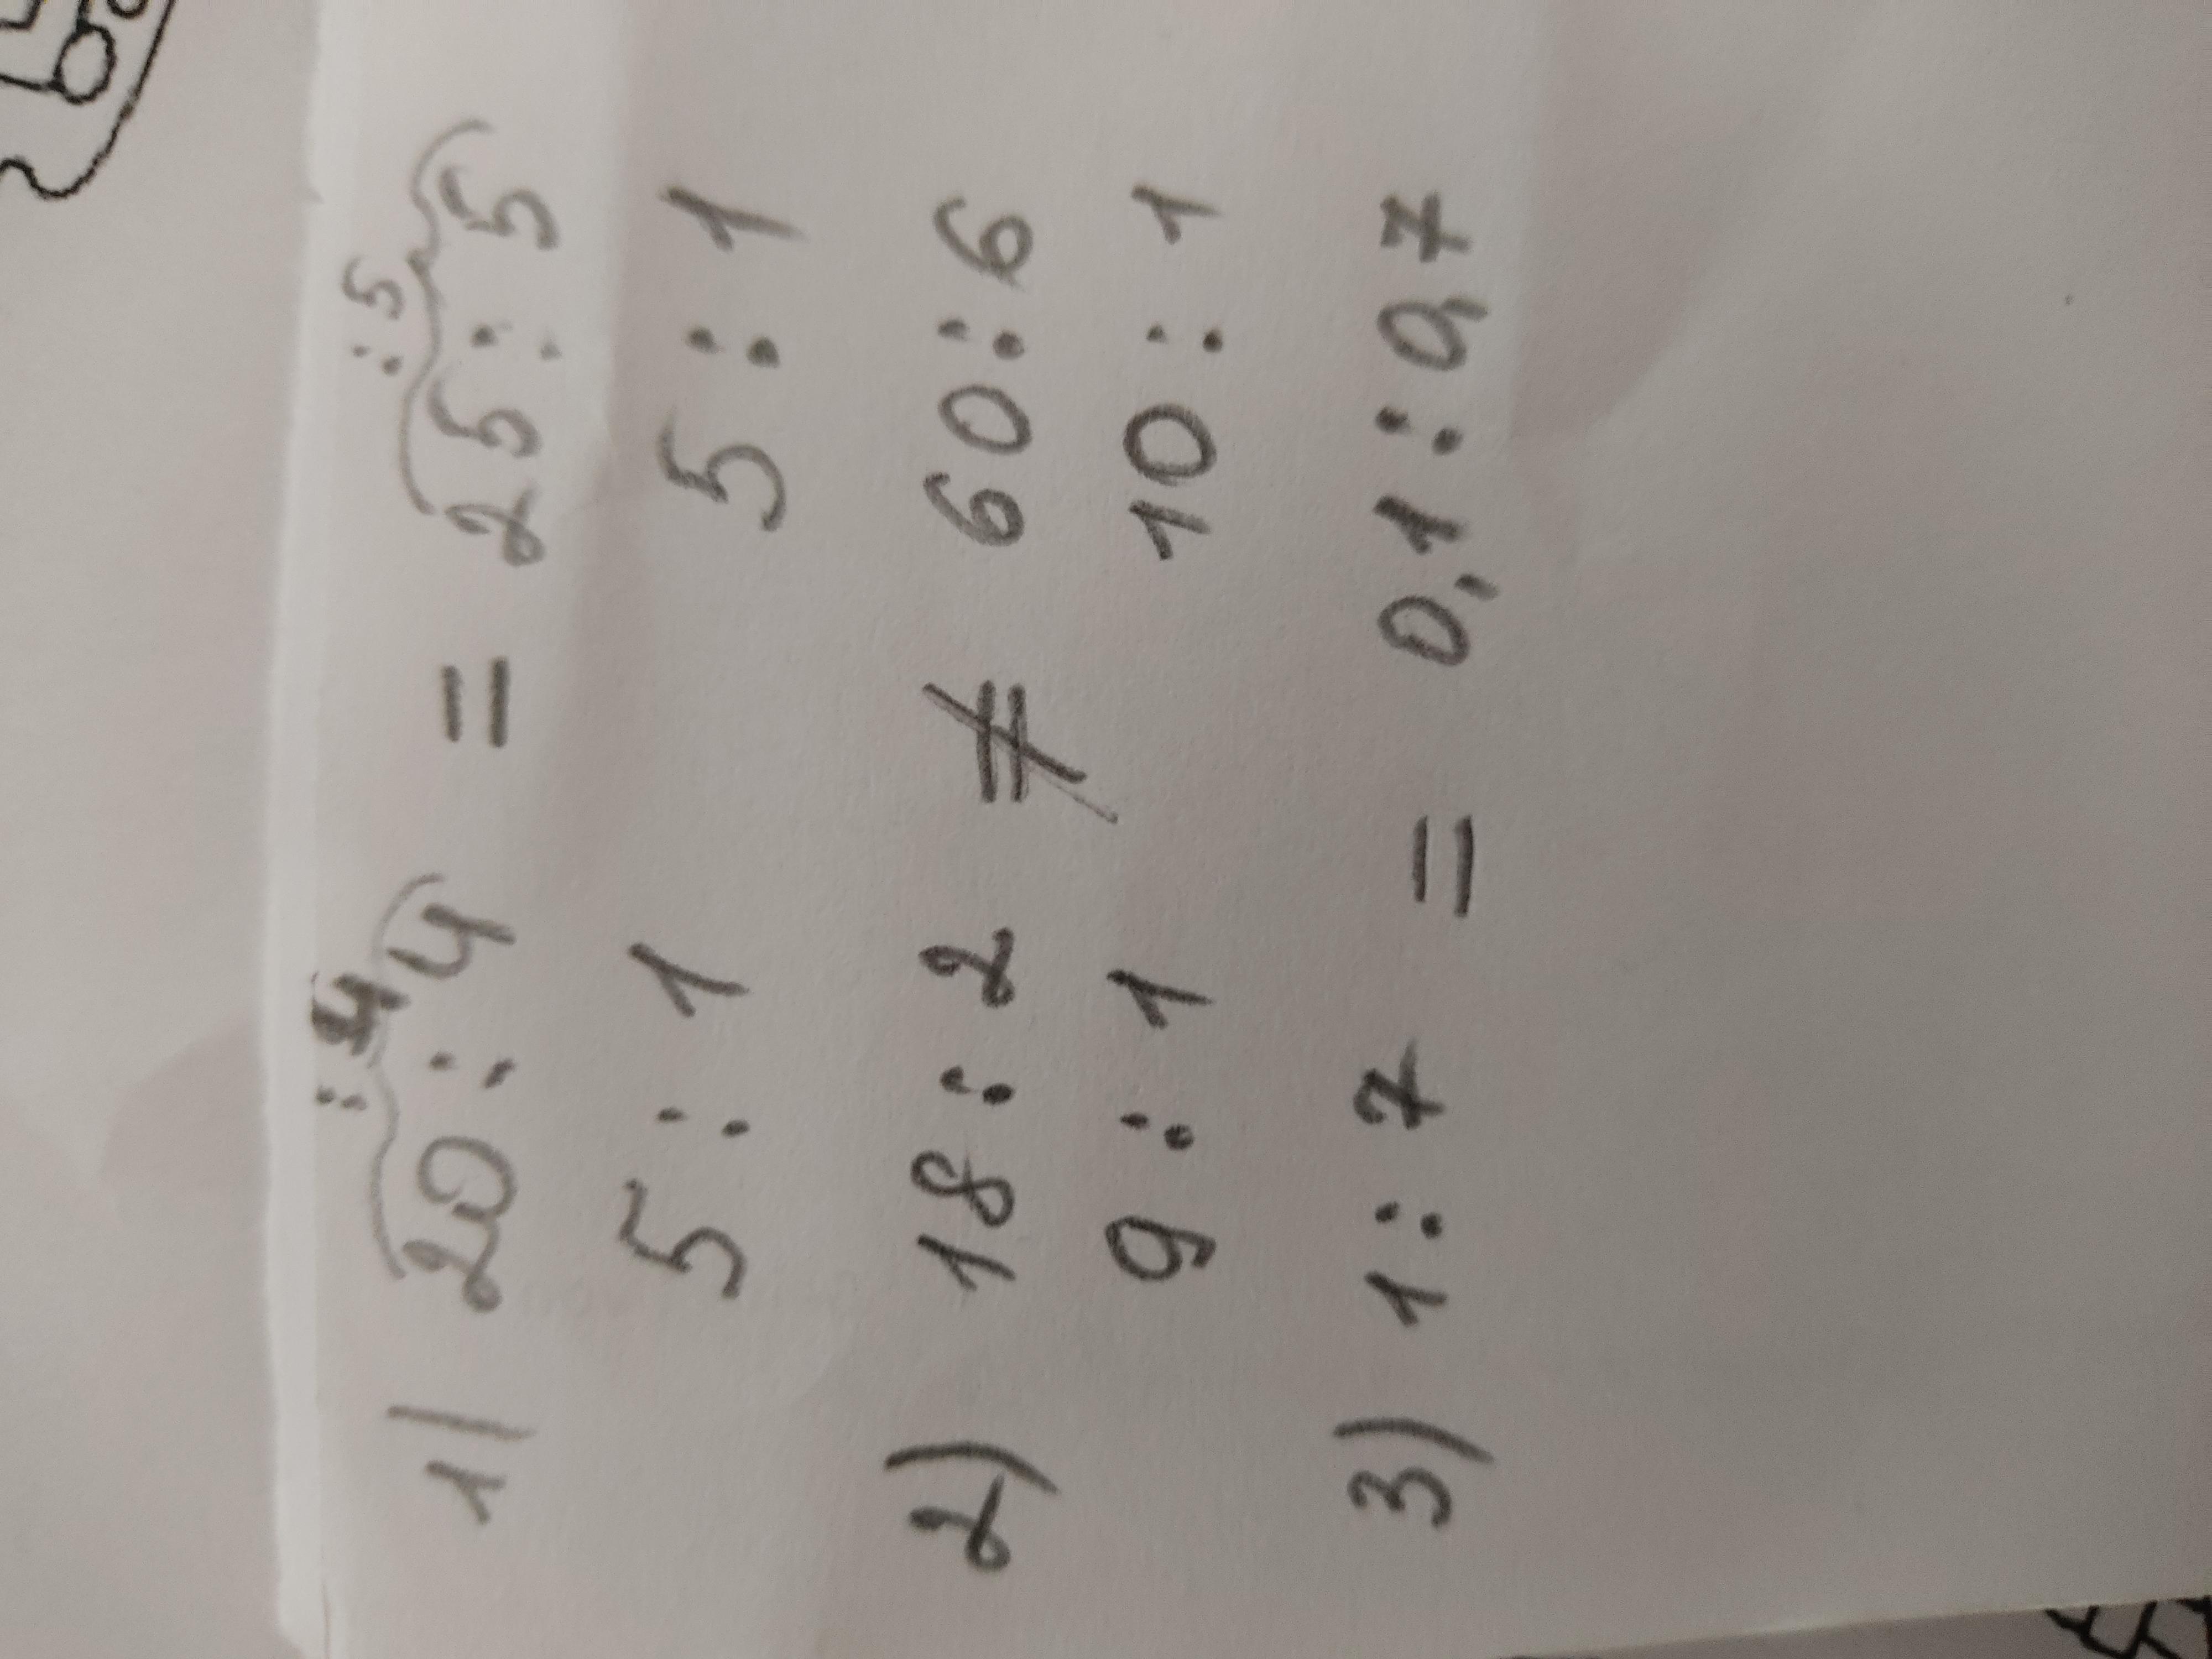 :4 :5
1) 20 : 4 = 25 : 5
5 : 1 5 : 1
2) 18 : 2 ≠ 60 : 6
9 : 1 10 : 1
3) 1 : 7 = 0,1 : 0,7